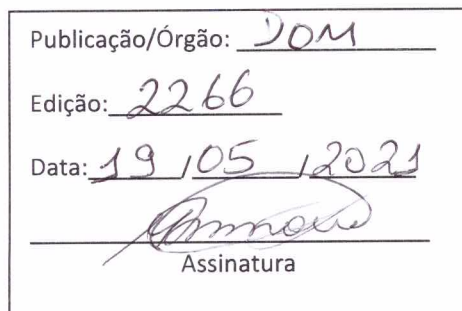 Publicação/Órgão: DOM
Edição: 2266
Data: 19 / 05 / 2021
Assinatura